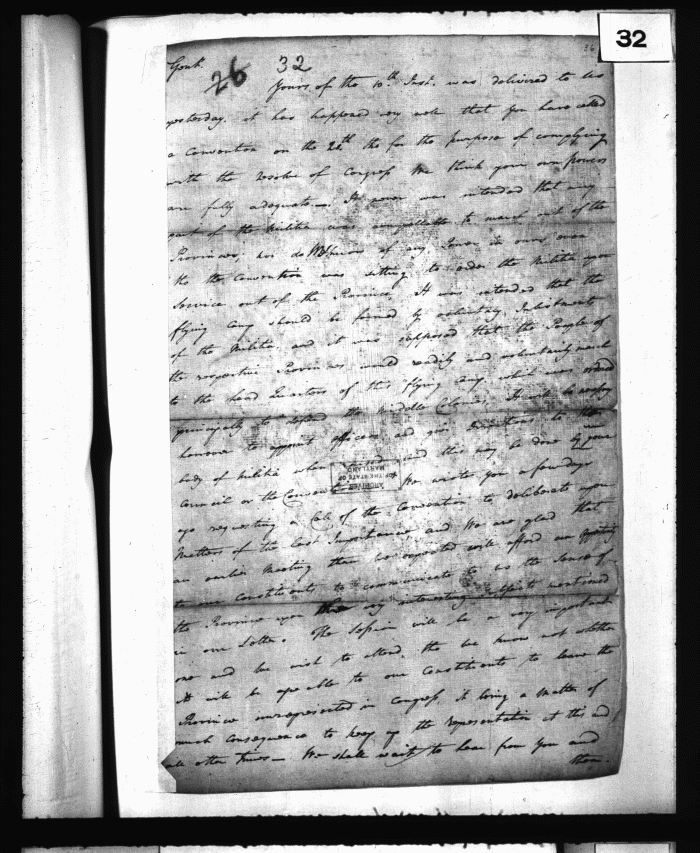 32
36
Gent.
26 32
Yours of the 10th Inst. was delivered to us
yesterday. it has happened very well that You have called
a Convention on the 20th tho for the purpose of complying
with the resolve of Congress We think your own powers
are fully adequate. It never was intended that any
part of the Militia was compellable to march out of the
Province, nor do We know of any Power in ours even
tho the Convention was sitting to order the Militia upon
Service out of the Province. It was intended that the
flying Camp should be formed by voluntary Inlistments
of the Militia and it was supposed that the People of
the respective Provinces would readily and voluntarily march
to the head Quarters of this flying army which was ordered
principally to defend the middle Colonies. It will be
honour to appoint officers and give to
body of Militia when and this may be done by your
Council or the Convention We wrote you a few days
ago requesting a Call of the Convention to deliberate upon
Matters of the last Importance and We are glad that
an earlier Meeting than We expected will afford an opportunity
to our Constituents to communicate to us the Sense of
the Province upon the very interesting Subjects mentioned
in our Letter. The Session will be a very important
one and we wish to attend, tho we know not whether
it will be agreeable to our Constituents to leave the
Province unrepresented in Congress, it being a Matter of
much Consequence to keep up the Representation at this and
all other Times— We shall wait to hear from You and
then.
ARCHIVES
OF THE STATE OF
MARYLAND